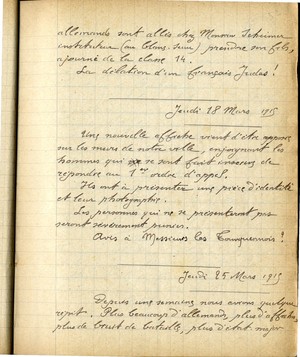 allemands sont allés chez Monsieur Scheimer
instituteur (au Blanc-Seau) prendre son fils,
ajourné de la classe 14.
La délation d'un français Judas !
Jeudi 18 Mars 1915
Une nouvelle affiche vient d'être apposée
sur les murs de notre ville, enjoignant les
hommes qui ne se sont fait inscrire de
répondre au 1er ordre d'appel.
Ils ont à présenter une pièce d'identité
et leur photographie.
Les personnes qui ne se présenteront pas
seront sévèrement punies.
Avis à Messieurs les Tourquennois !
Jeudi 25 Mars 1915
Depuis une semaine nous avons quelque
répit. Plus beaucoup d'allemands, plus d'affiches,
plus de bruit de bataille, plus d'état major